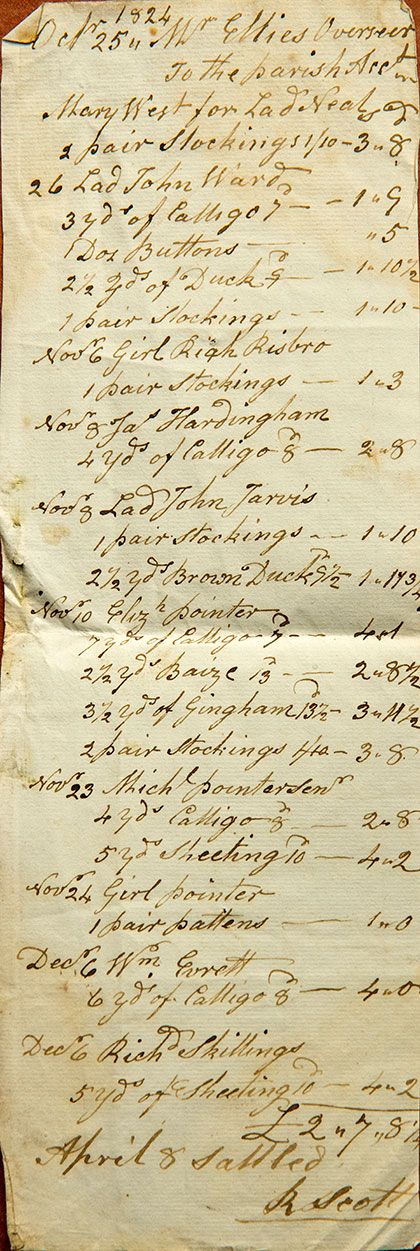 1824
Octr 25 " Mr Ellies Overseer
To the parish Acct
Mary West for Lad Neal s d
2 pair Stockings 1/10 - 3 " 8
26 Lad John Ward
3 yds of Calligo 7d - - 1 " 9
1 Doz Buttons - " 5
2 1/2 yds of Duck 9d - 1 " 10 1/2
1 pair Stockings - - 1 " 10 -
Novr 6 Girl Risbro
1 pair Stockings - 1 " 3
Novr 8 Jas Hardingham
4 yds of Calligo 8d - 2 " 8
Novr 8 Lad John Jarvis
1 pair Stockings - - 1 " 10
2 1/2 yds Brown Duck 9 1/2 1 " 11 3/4
Novr 10 Elizh pointer
7 yds of Calligo 7d - - 4 " 1
2 1/2 yds Baize 13d - - 2 " 8 1/2
3 1/2 yds of Gingham 13 1/2d - 3 " 11 1/2
2 pair Stockings 1/10 - 3 " 8
Novr 23 Michl pointer Senr
4 yds Calligo 8d - 2 " 8
5 yds Sheeting 10d - 4 " 2
Novr 24 Girl pointer
1 pair pattens - 1 " 0
Decr 6 Wm Evrett
6 yds of Calligo 8d - 4 " 0
Decr 6 Richd Skillings
5 yds of Sheeting 10d - 4 " 2
£ 2 " 7 " 8 1/4
April 8 Sattled
R Scott